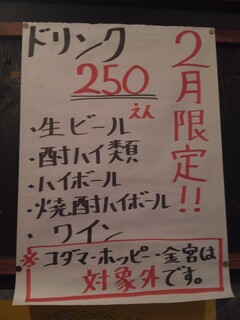 2月限定!!
ドリンク
250
えん
・生ビール
・酎ハイ類
・ハイボール
・焼酎ハイボール
・ワイン
※コダマ・ホッピー・金宮は
対象外です。